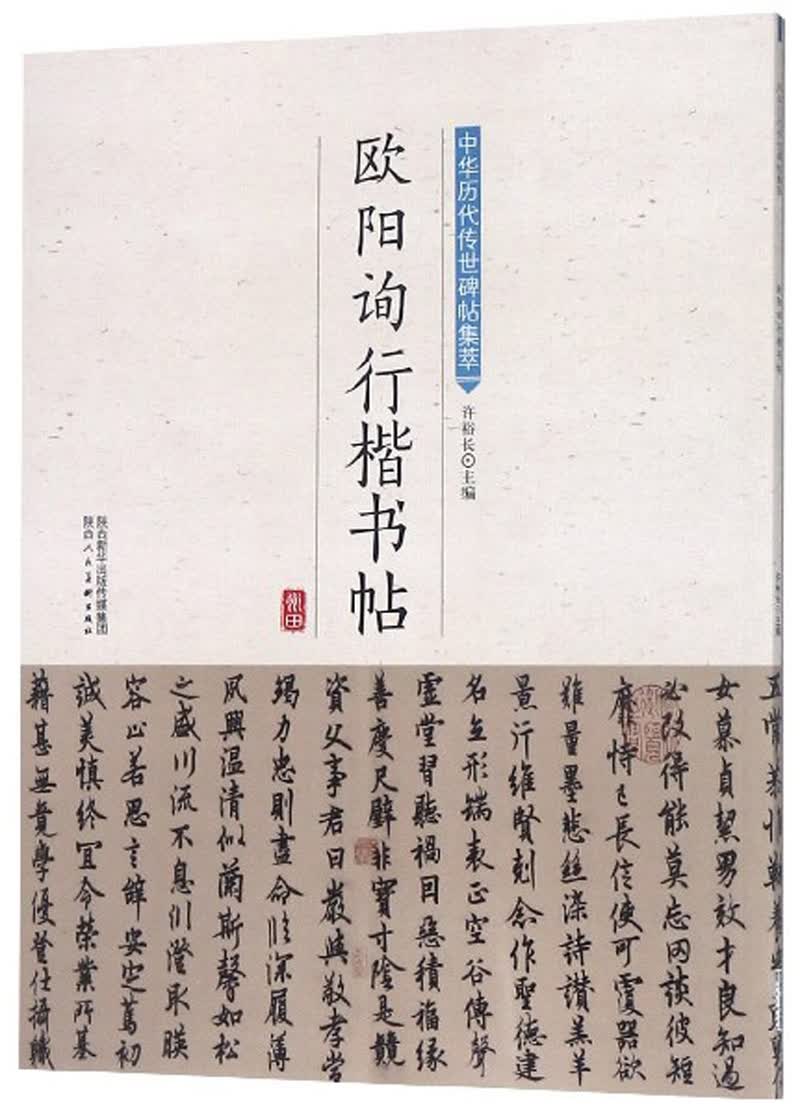 中华历代传世碑帖集萃
许裕长⊙主编
欧阳询行楷书帖
陕西新华出版传媒集团
陕西人民美术出版社
五常恭惟鞠養
女慕貞絜男效才良知過
必改得能莫忘罔談彼短
靡恃己長信使可覆器欲
難量墨悲絲染詩讚羔羊
景行維賢剋念作聖德建
名立形端表正空谷傳聲
虛堂習聽禍因惡積福緣
善慶尺璧非寶寸陰是競
資父事君曰嚴與敬孝當
竭力忠則盡命臨深履薄
夙興温凊似蘭斯馨如松
之盛川流不息川澄取暎
容止若思言辭安定篤初
誠美慎終宜令榮業所基
藉甚無竟學優登仕攝職